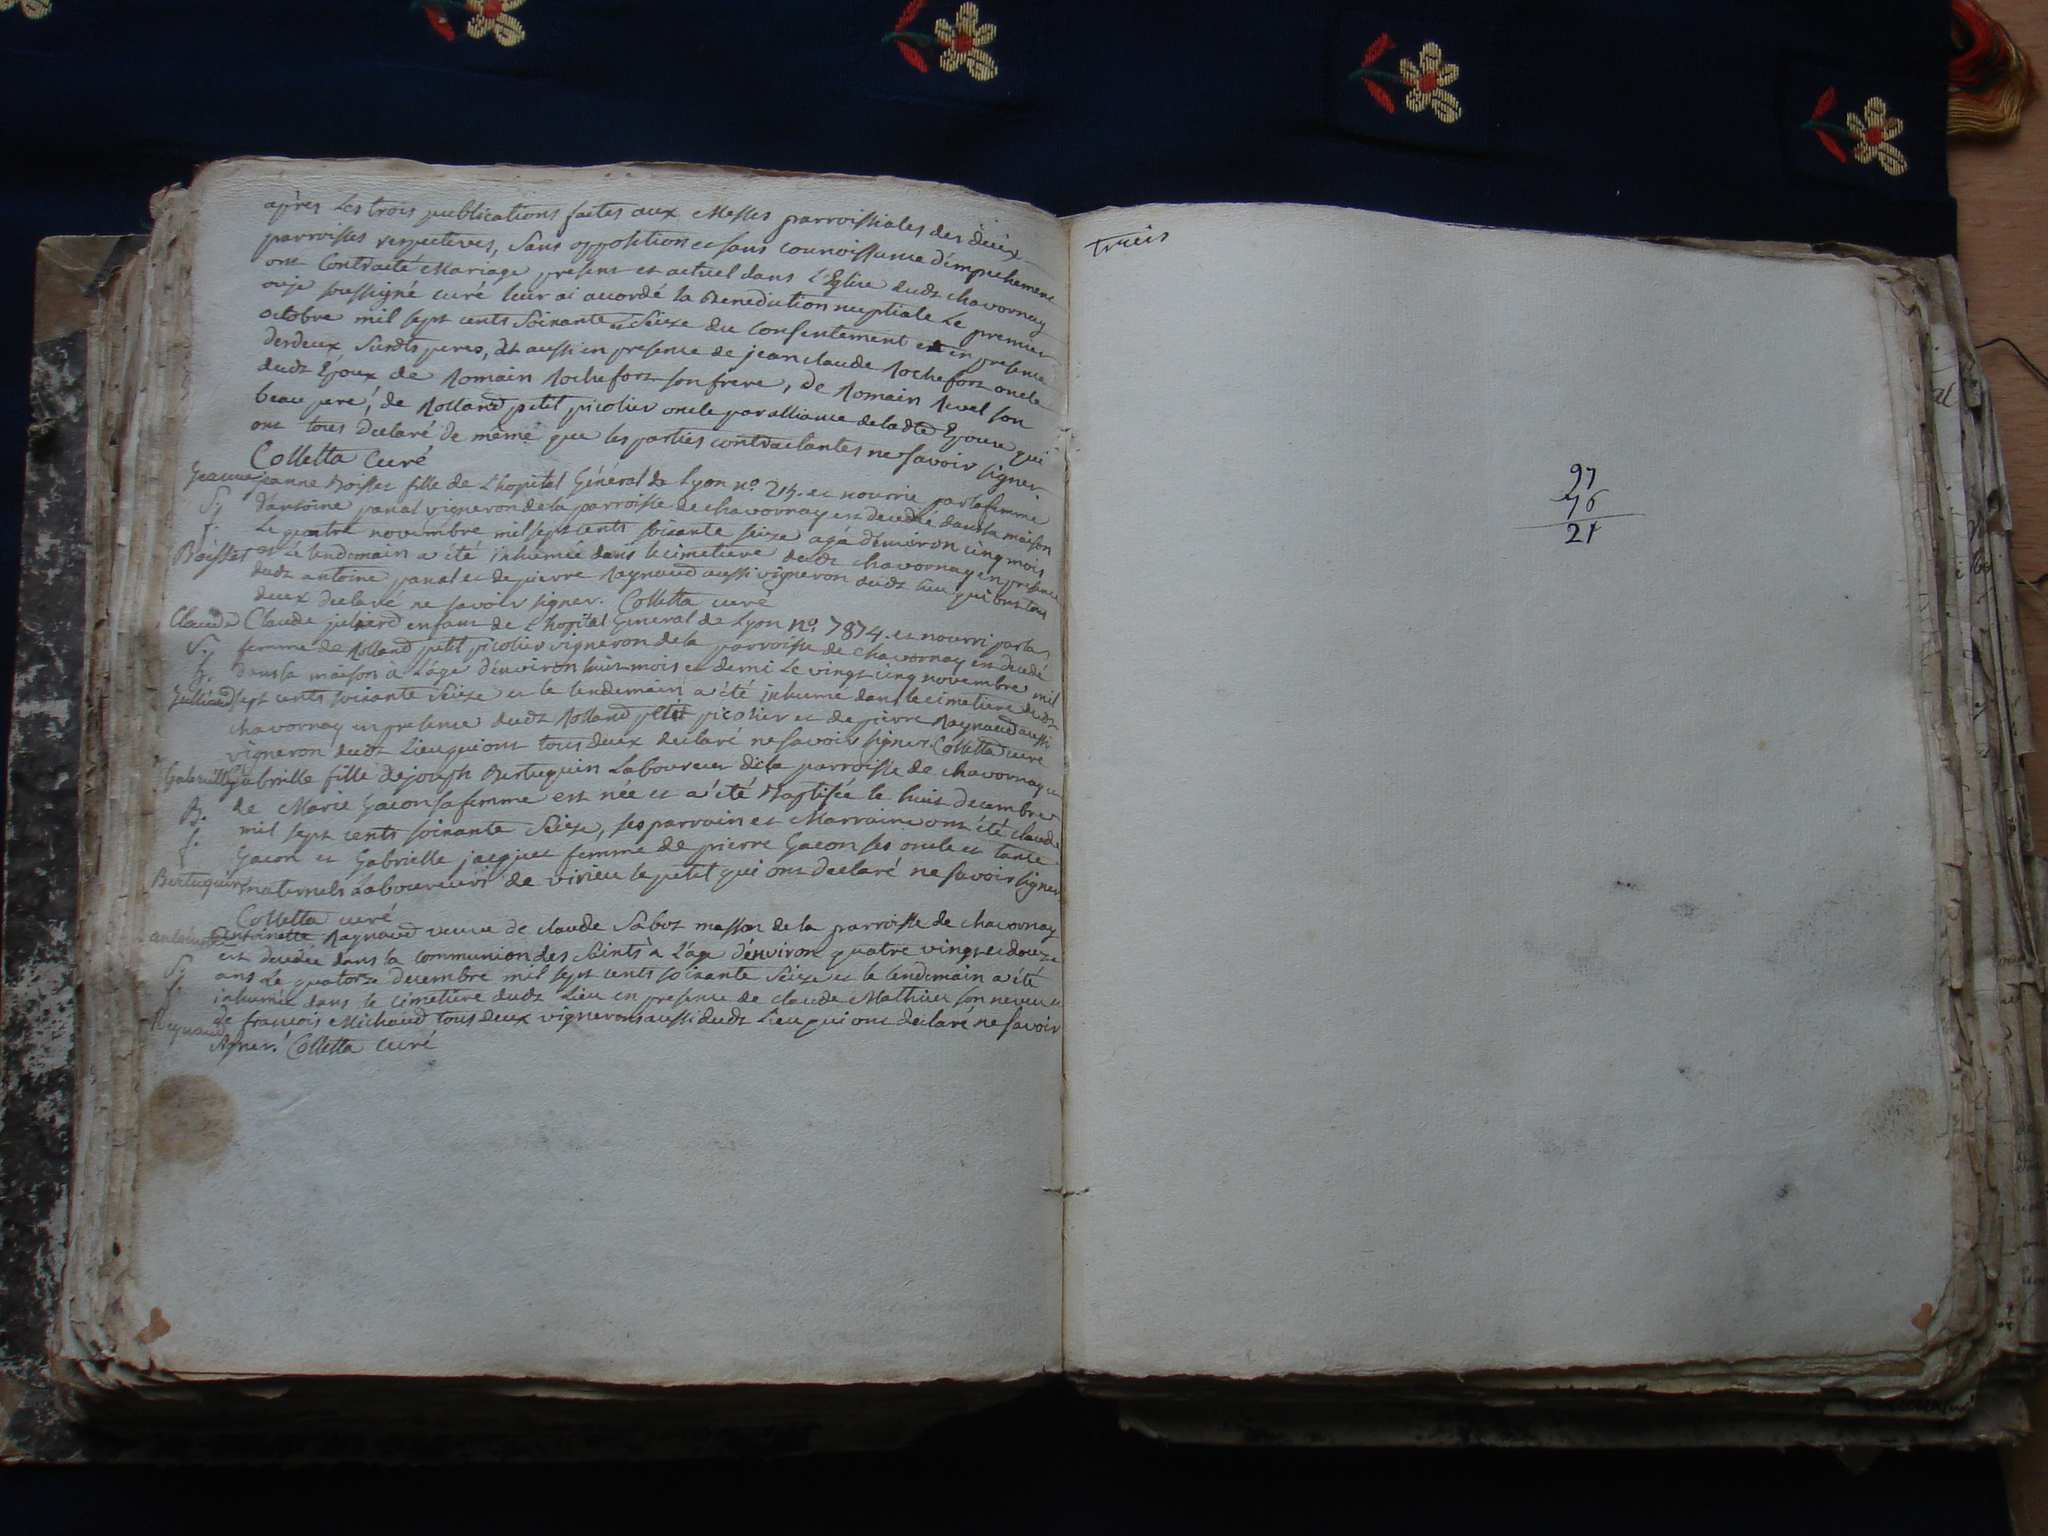 après Les trois publications faites aux Messes parroissiales des deux
parroisses respectives, sans opposition et sans connoissance d'empechement
ont Contracté Mariage present et actuel dans l'Eglise dudt chavornay
ou je soussigné curé leur ai accordé la Benediction nuptiale Le premier
octobre mil sept cents soixante et seize du consentement et en presence
des deux susdts peres, et aussi en presence de jean claude Rochefort oncle
dudt Epoux de Romain Rochefort son frere, de Romain Revel son
beau pere, de Rolland petit picolier oncle par alliance de ladte Epouse qui
ont tous declaré de même que les parties contractantes ne savoir signer
Colletta Curé
jeanne Boisset fille de L'hopital Général de Lyon no. et nourrie par la femme
S. d'antoine panal vigneron de la parroisse de chavornay est decedée dans sa maison
f. Le quatre novembre mil sept cents soixante seize agé d'environ cinq mois
Boisset et le lendemain a été inhumée dans le cimetiere dudt chavornay en presence
dudt antoine panal et de pierre Raynaud aussi vigneron dudt lieu qui ont tous
deux declaré ne savoir signer. Colletta curé
Claude Claude julliard enfant de L'hopital General de Lyon no. 7874. et nourri par la
S. femme de Rolland petit picolier vigneron de la parroisse de chavornay est decedé
f. dans sa maison à L'age d'environ huit mois et demi Le vingt cinq novembre mil
Julliard sept cents soixante seize et le lendemain a été inhumé dans le cimetiere dudt
chavornay en presence dudt Rolland petit picolier et de pierre Raynaud aussi
vigneron dudt Lieu qui ont tous deux declaré ne savoir signer. Colletta curé
Gabrielle Gabrielle fille de joseph Bertuquin Laboureur de la parroisse de chavornay et
B. de Marie Gacon sa femme est née et a été Baptisée le huit decembre
f. mil sept cents soixante seize, ses parrain et Marraine ont été claude
Gacon et Gabrielle jacquet femme de pierre Gacon ses oncle et tante
Bertuquin maternels Laboureurs de virieu le petit qui ont declaré ne savoir signer
Colletta curé
antoinette Raynaud veuve de claude Sabot masson de la parroisse de chavornay
est decedée dans la communion des Saints à L'age d'environ quatre vingt et douze
S. ans Le quatorze decembre mil sept cents soixante seize et le lendemain a été
f. inhumée dans le cimetiere dudt Lieu en presence de claude Mathieu son neveu et
Reynaud de francois Michaud tous deux vignerons aussi dudt Lieu qui ont declaré ne savoir
signer. Colletta curé
97
76
21